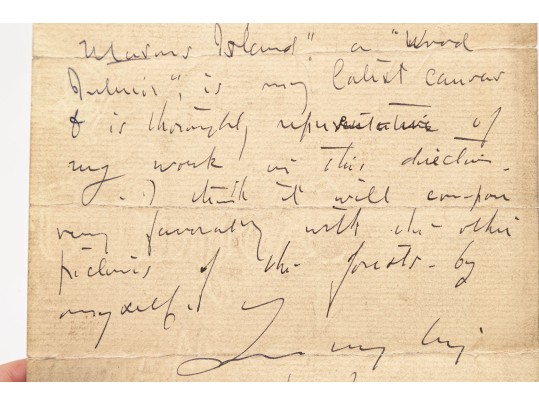 Masons Island". a "Wood
Interior", is my latest canvas
& is thoroughly representative of
my work in this direction.
- I think it will compare
very favorably with the other
pictures of the forests - by
myself.